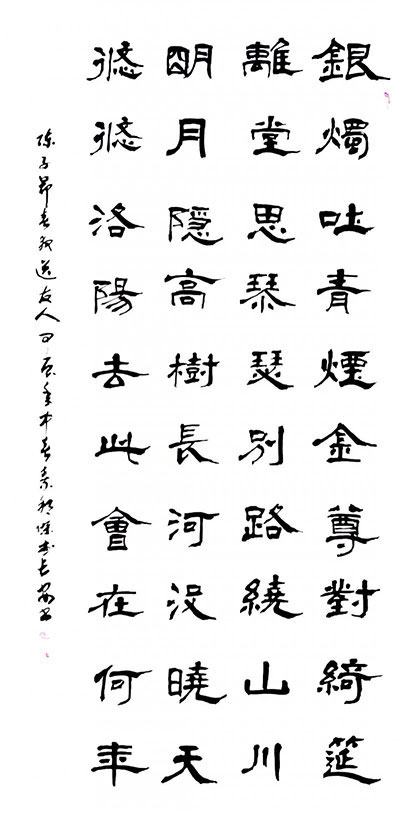 銀燭吐青煙金尊對綺筵
離堂思琴瑟別路繞山川
明月隐高樹長河没曉天
悠悠洛陽去此會在何年
陈子昂春夜送友人